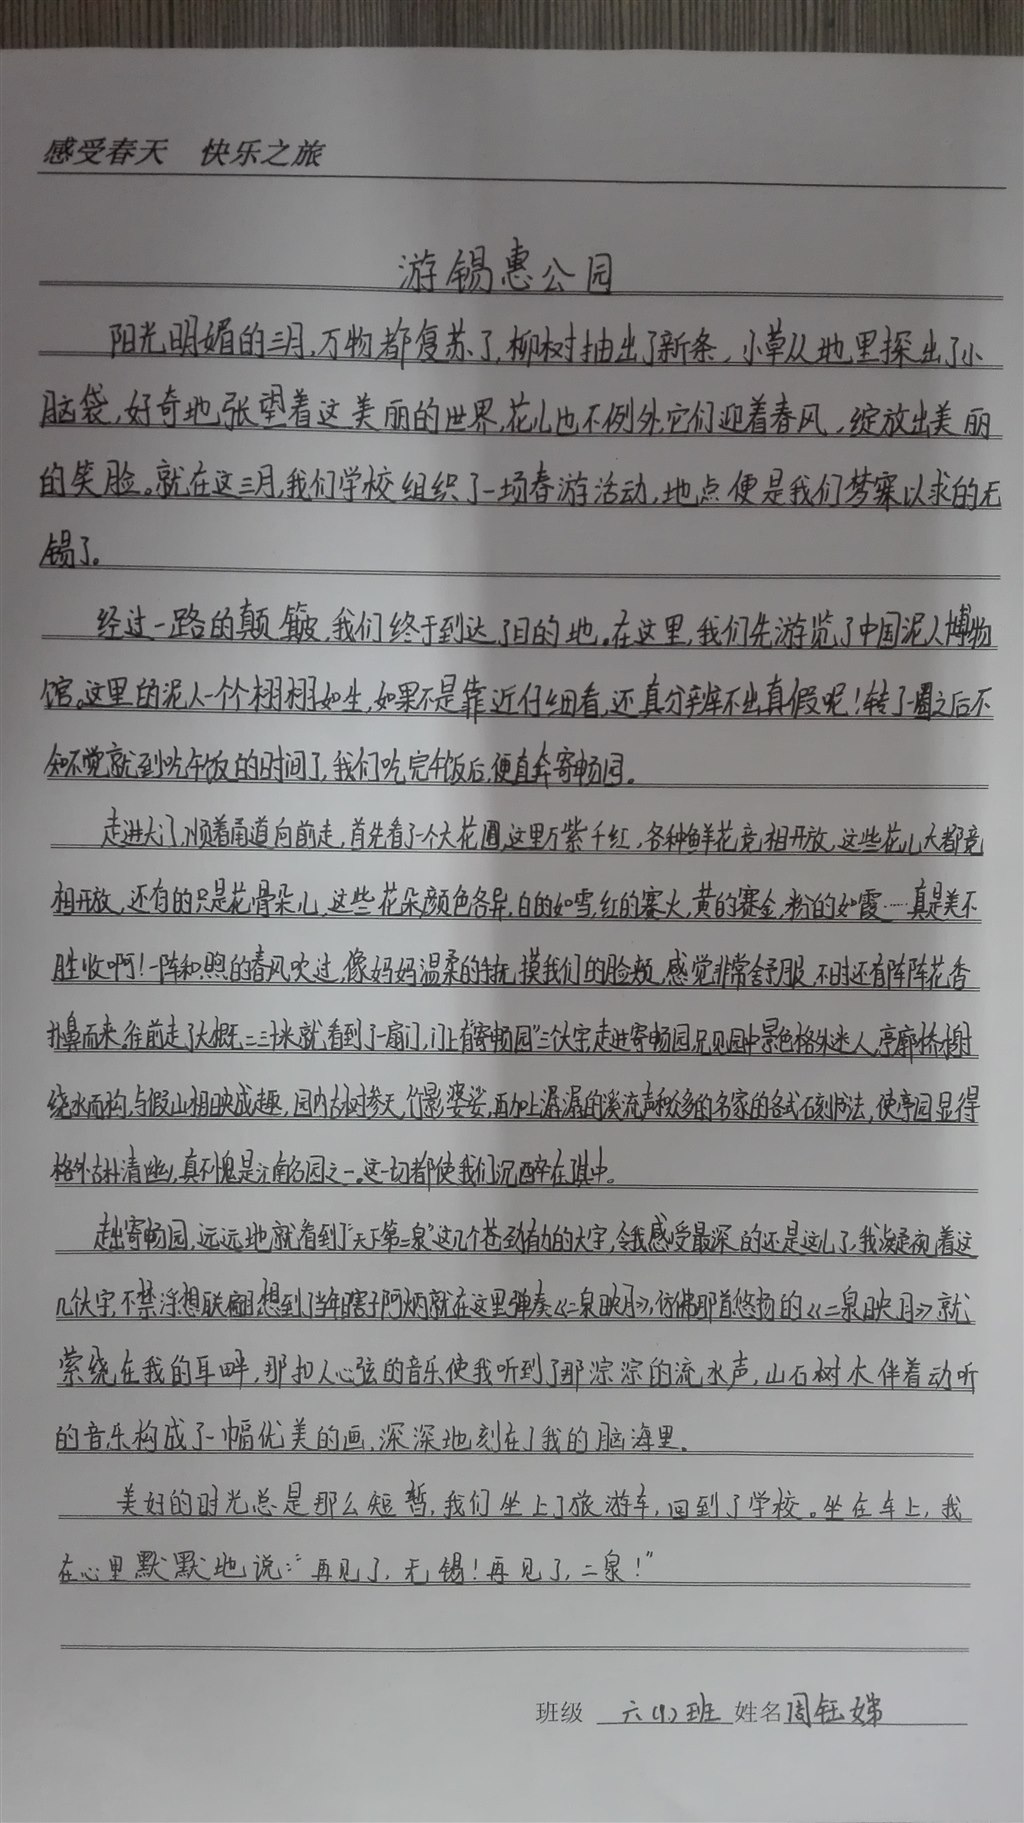 感受春天 快乐之旅
游锡惠公园
阳光明媚的三月,万物都复苏了,柳树抽出了新条,小草从地里探出了小
脑袋,好奇地张望着这美丽的世界,花儿也不例外,它们迎着春风,绽放出美丽
的笑脸。就在这三月,我们学校组织了一场春游活动,地点便是我们梦寐以求的无
锡了。
经过一路的颠簸,我们终于到达了目的地。在这里,我们先游览了中国泥人博物
馆。这里的泥人一个个栩栩如生,如果不是靠近仔细看,还真分辨不出真假呢!转了一圈之后不
知不觉就到吃午饭的时间了,我们吃完午饭后,便直奔寄畅园。
走进大门,顺着甬道向前走,首先看了一个大花圃,这里万紫千红,各种鲜花竞相开放,这些花儿大都竞
相开放,还有的只是花骨朵儿,这些花朵颜色各异,白的如雪,红的赛火,黄的赛金,粉的如霞……真是美不
胜收啊!一阵和煦的春风吹过,像妈妈温柔的手抚摸我们的脸颊,感觉非常舒服,不时还有阵阵花香
扑鼻而来,往前走了大概二三十米就看到了一扇门,门上有"寄畅园"三个大字,走进寄畅园,只见园中景色格外迷人,亭廊桥榭
绕水而构,与假山相映成趣,园内古树参天,竹影婆娑,再加上潺潺的溪流声和众多的名家的各式石刻书法,使亭园显得
格外古朴清幽,真不愧是江南名园之一。这一切都使我们沉醉在其中。
走出寄畅园,远远地就看到"天下第二泉"这几个苍劲有力的大字,令我感受最深的还是这儿了,我凝视着这
几个大字,不禁浮想联翩,想到了当年瞎子阿炳就在这里弹奏《二泉映月》,仿佛那首悠扬的《二泉映月》就
萦绕在我的耳畔,那扣人心弦的音乐使我听到了那淙淙的流水声,山石树木伴着动听
的音乐构成了一幅优美的画,深深地刻在了我的脑海里。
美好的时光总是那么短暂,我们坐上了旅游车,回到了学校。坐在车上,我
在心里默默地说:"再见了,无锡!再见了,二泉!"
班级 六(1)班 姓名 周钰娣